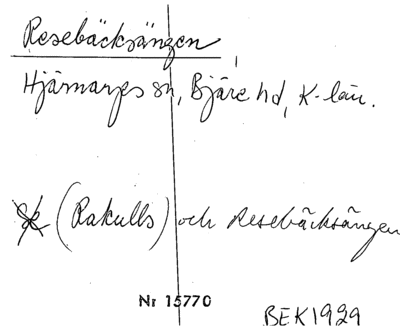 Resebäcksängen
Hjärnarps sn, Bjäre hd, K-län.
(Rakulls) och Resebäcksängen
Nr 15770
BEK1929